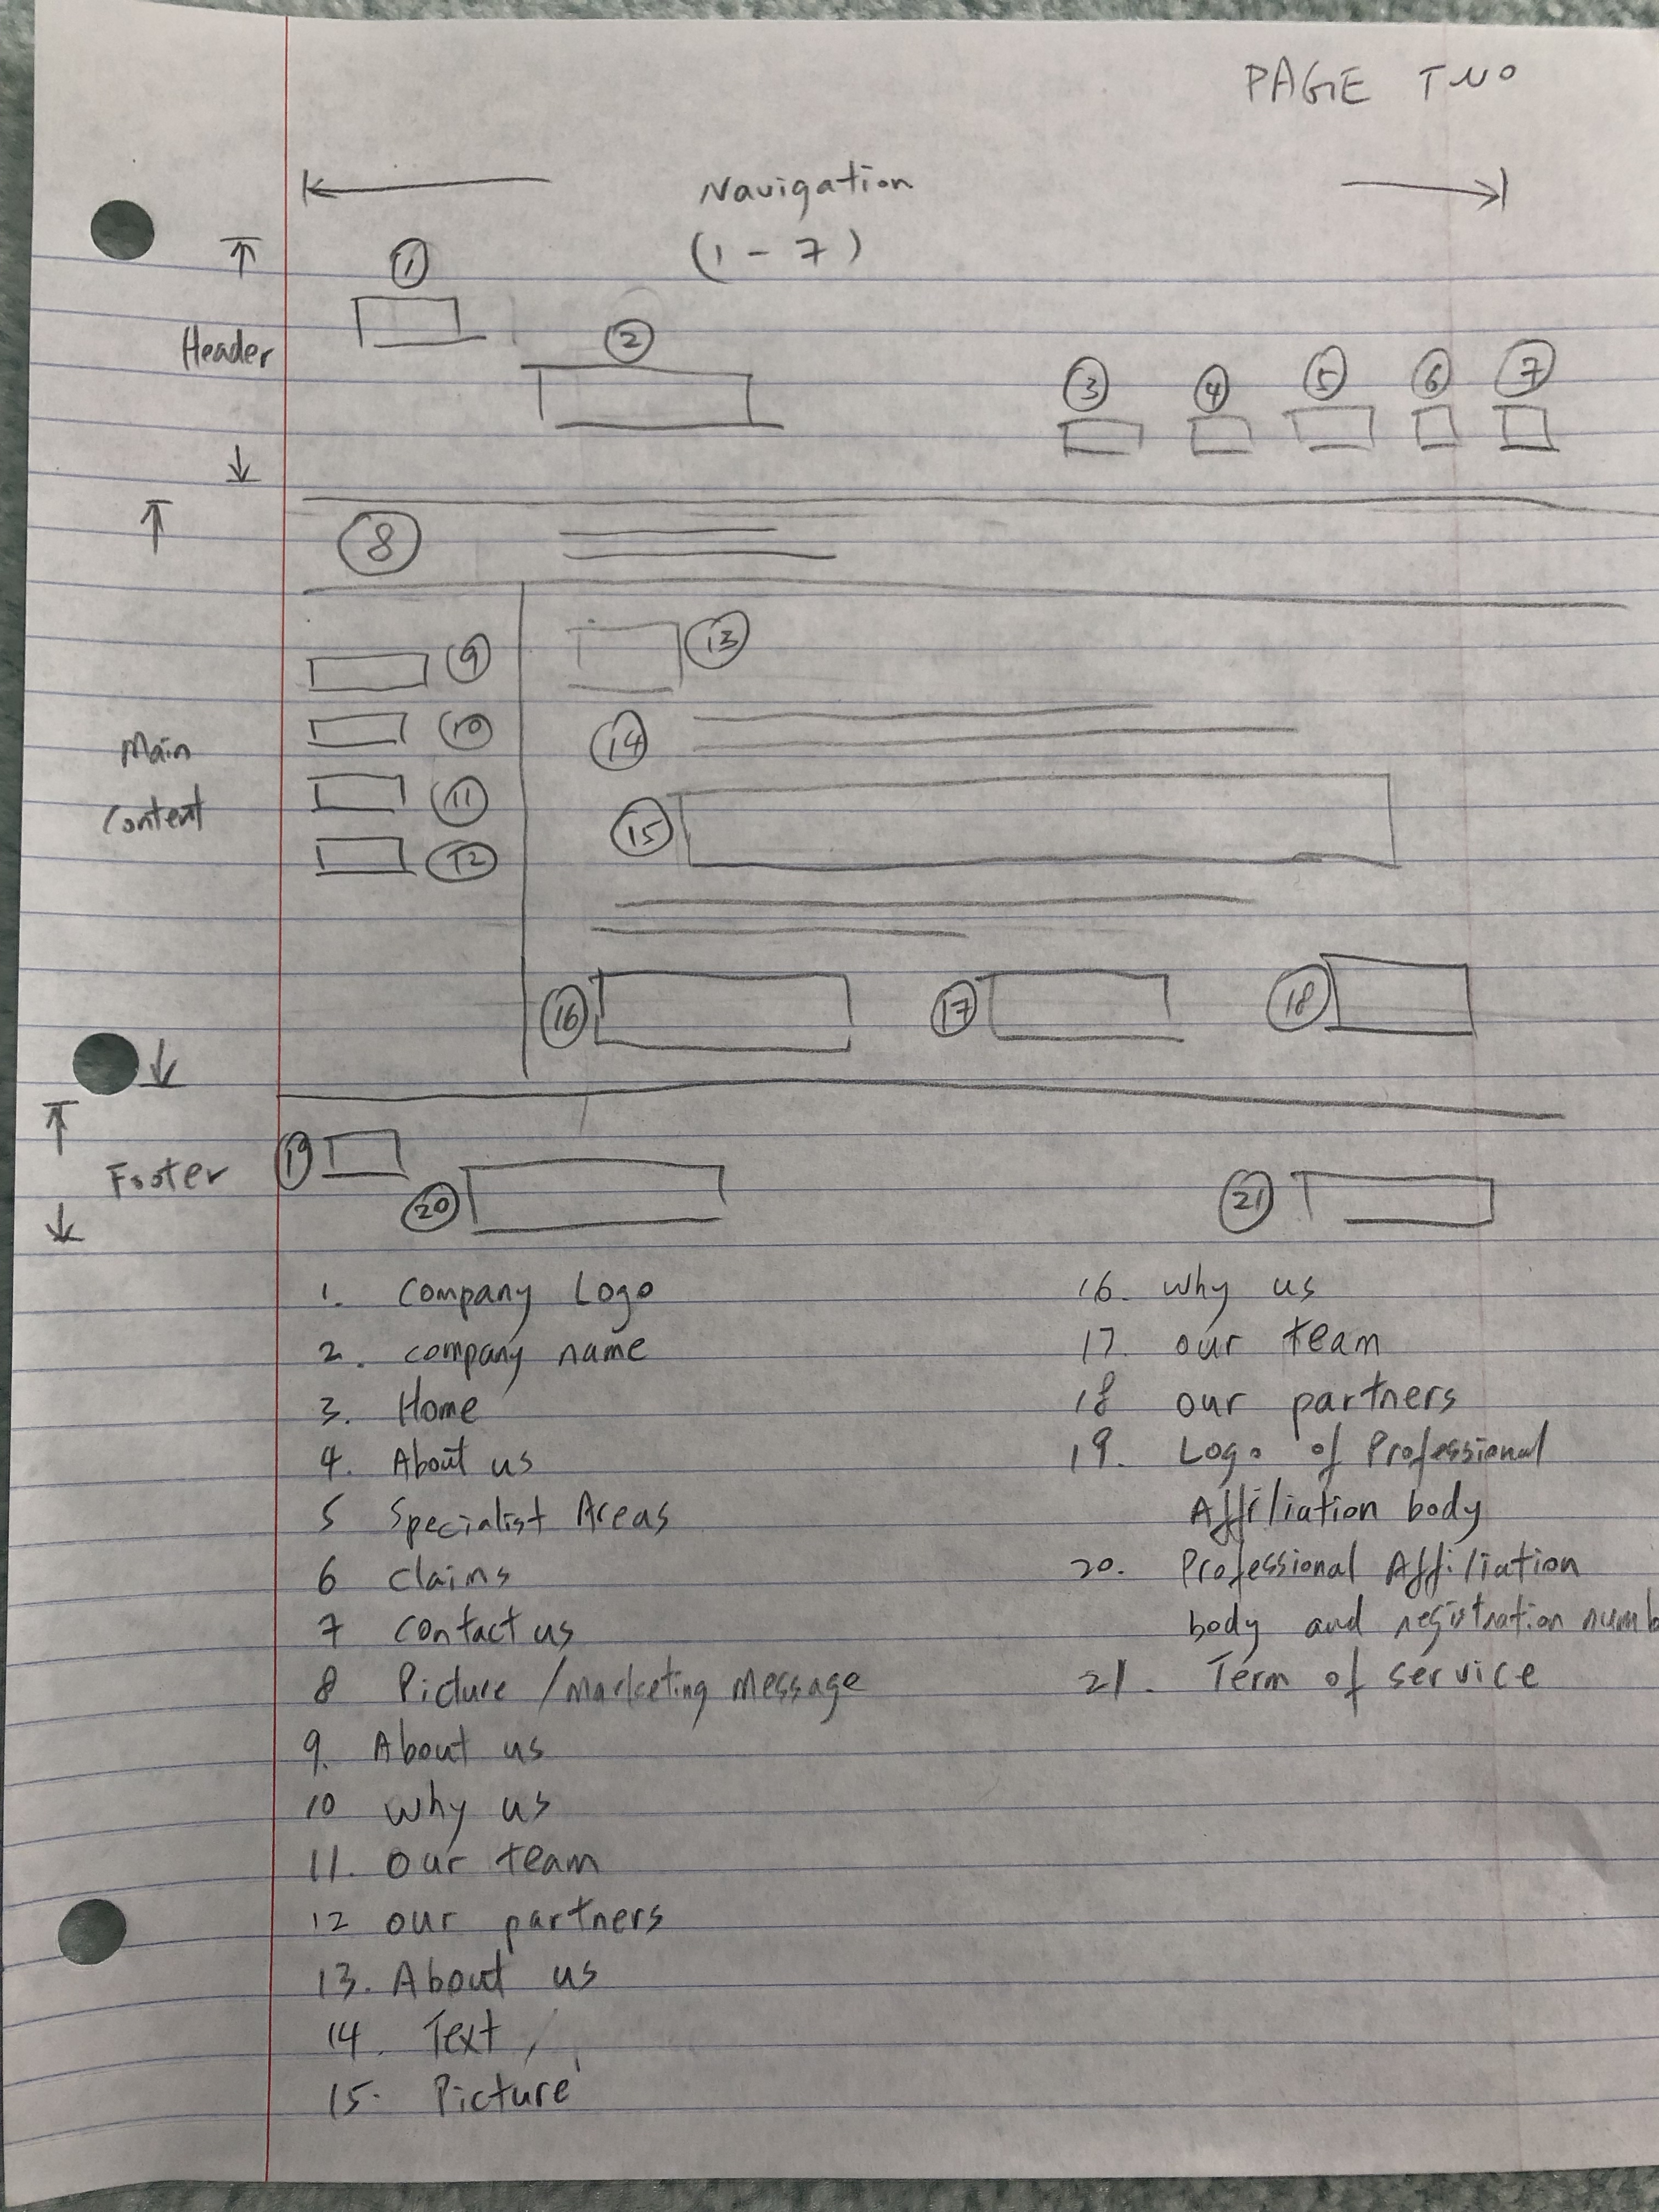 PAGE TWO
Navigation
(1 - 7)
1
Header
2
3 4 5 6 7
8
9
13
10
14
Main
11
Content
15
12
16 17 18
19
Footer
20
21
1. Company Logo
2. company name
3. Home
4. About us
5 Specialist Areas
6 Claims
7 Contact us
8 Picture / marketing message
9. About us
10 Why us
11. Our team
12 our partners
13. About us
14. Text
15. Picture
16. Why us
17. our team
18 our partners
19. Logo of Professional
Affiliation body
20. Professional Affiliation
body and registration numb
21. Term of service